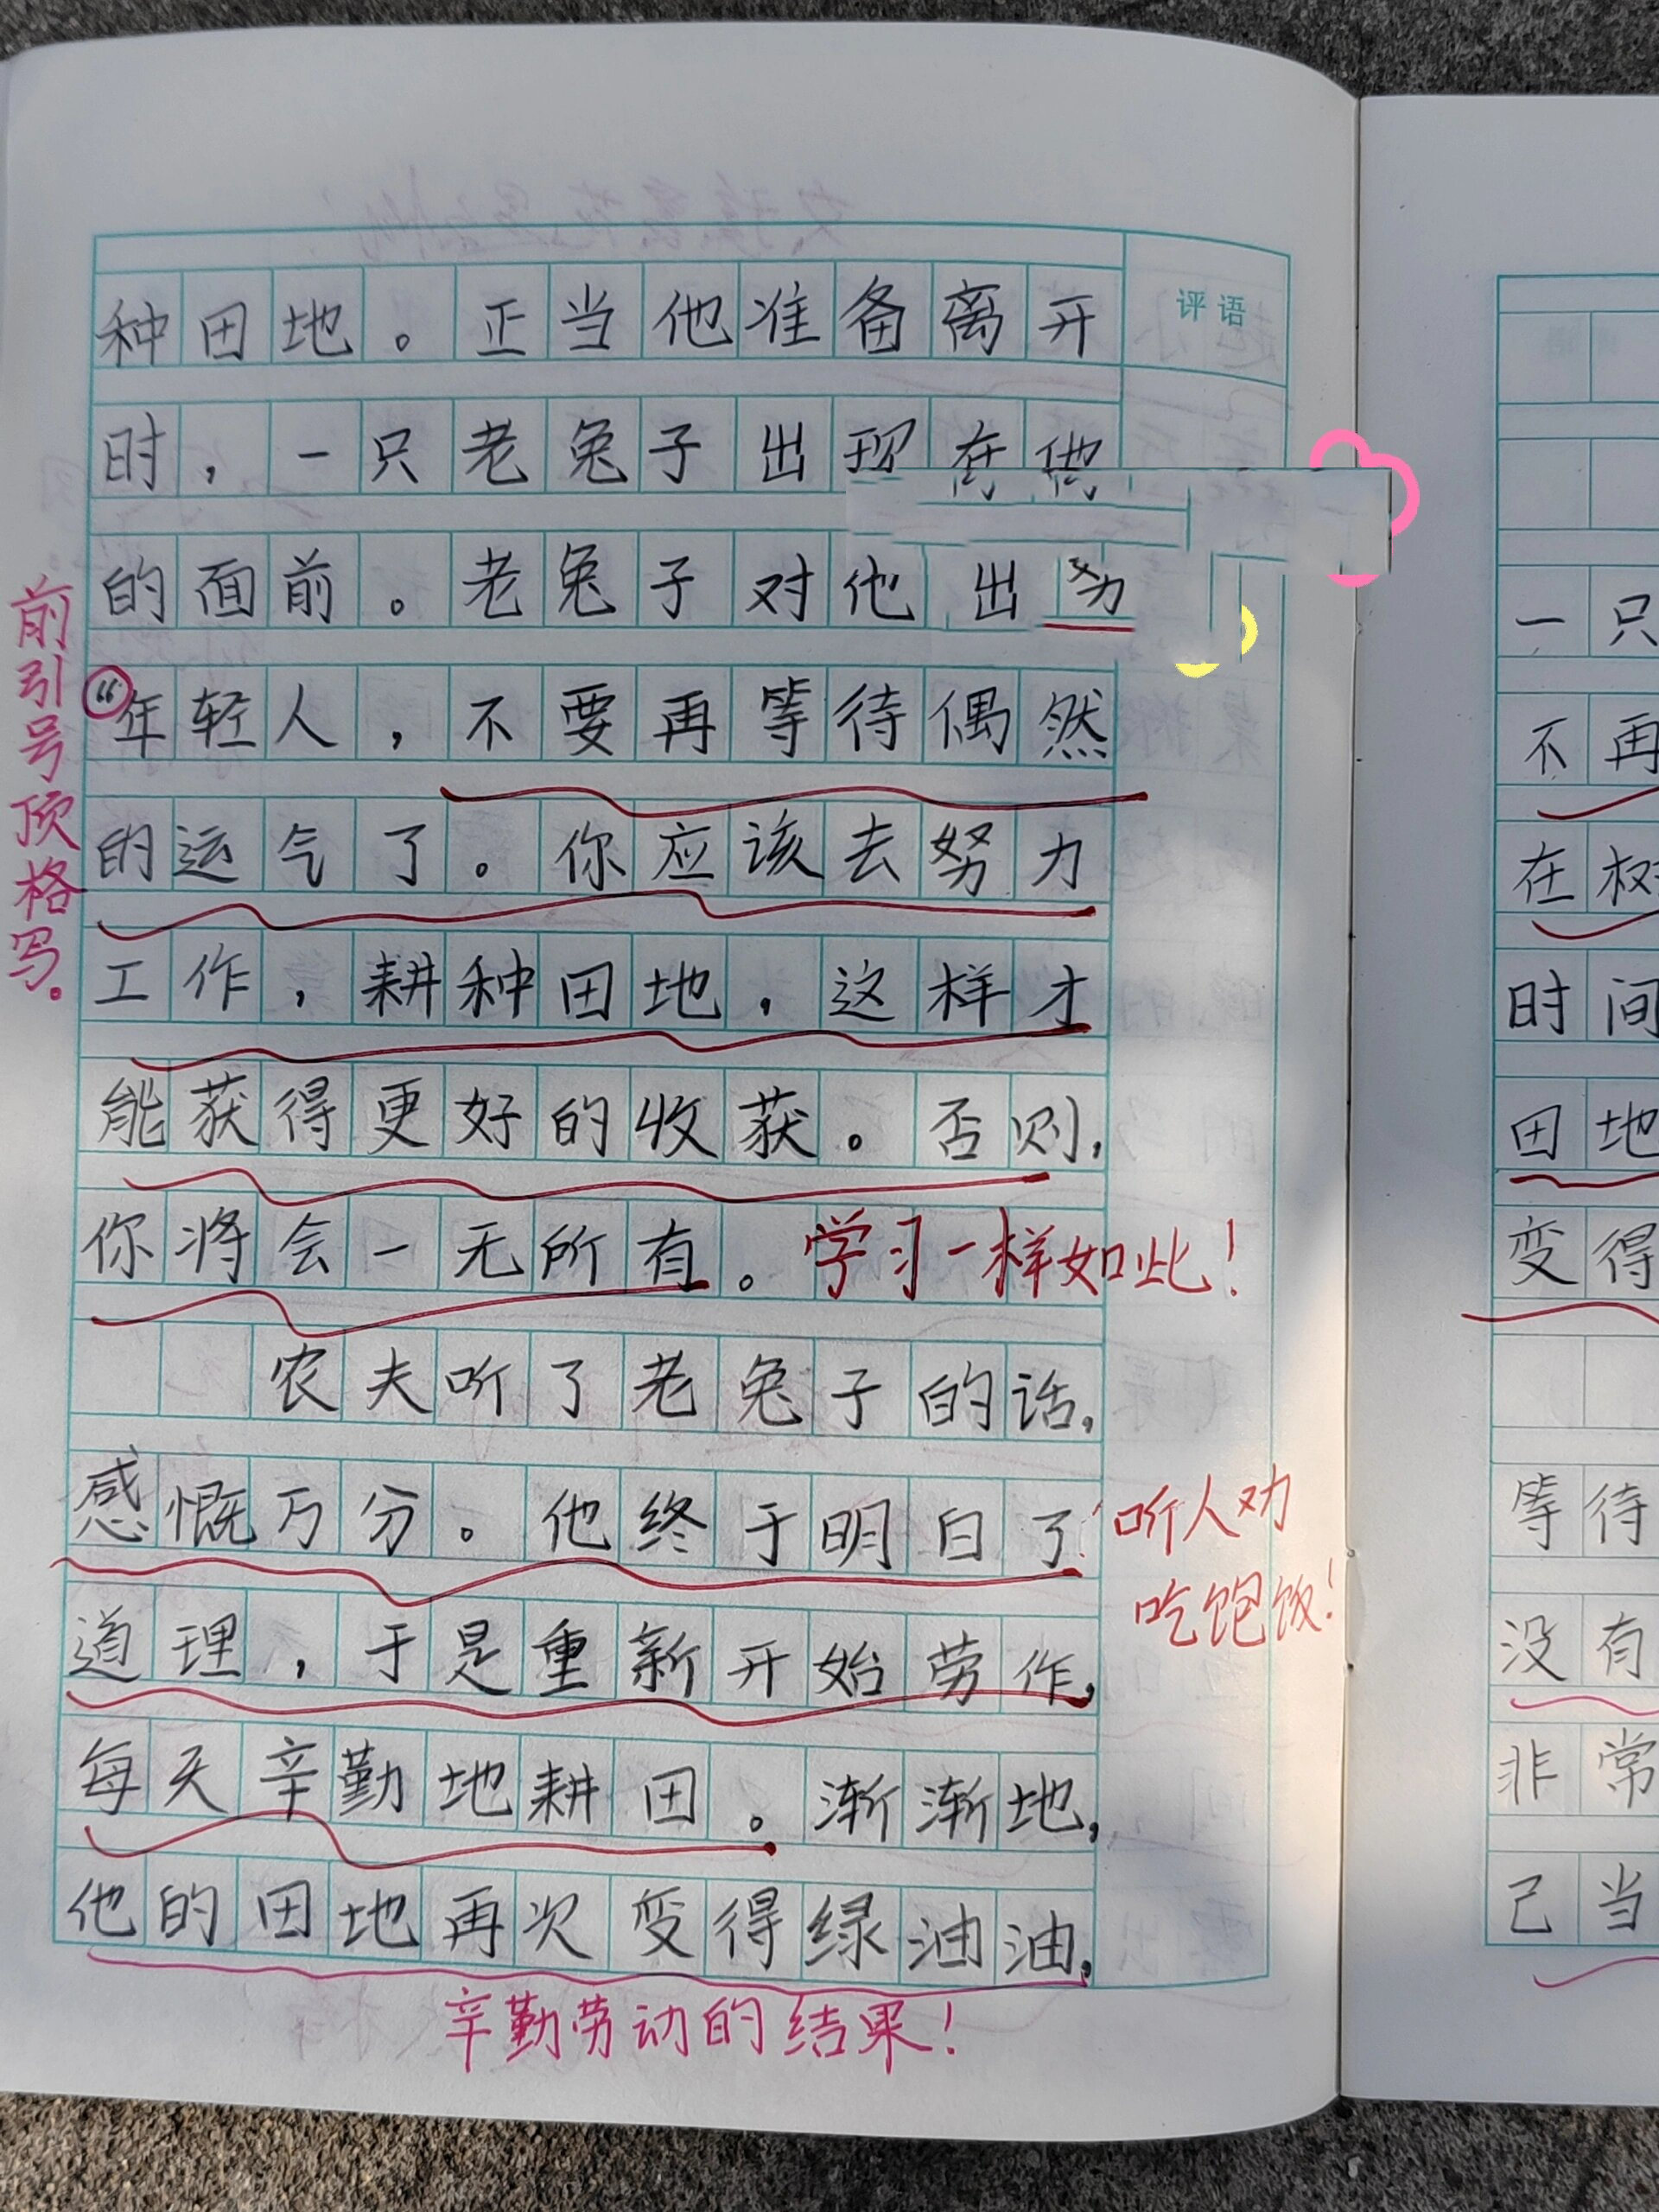 评语
种田地。正当他准备离开
时，一只老兔子出现在他
的面前。老兔子对他出
“年轻人，不要再等待偶然
的运气了。你应该去努力
工作，耕种田地，这样才
能获得更好的收获。否则，
你将会一无所有。学习一样如此！
农夫听了老兔子的话，
感慨万分。他终于明白了
听人劝
吃饱饭！
道理，于是重新开始劳作，
每天辛勤地耕田。渐渐地，
他的田地再次变得绿油油，
辛勤劳动的结果！
前引号顶格写。
一只
不再
在树
时间
田地
变得
等待
没有
非常
己当